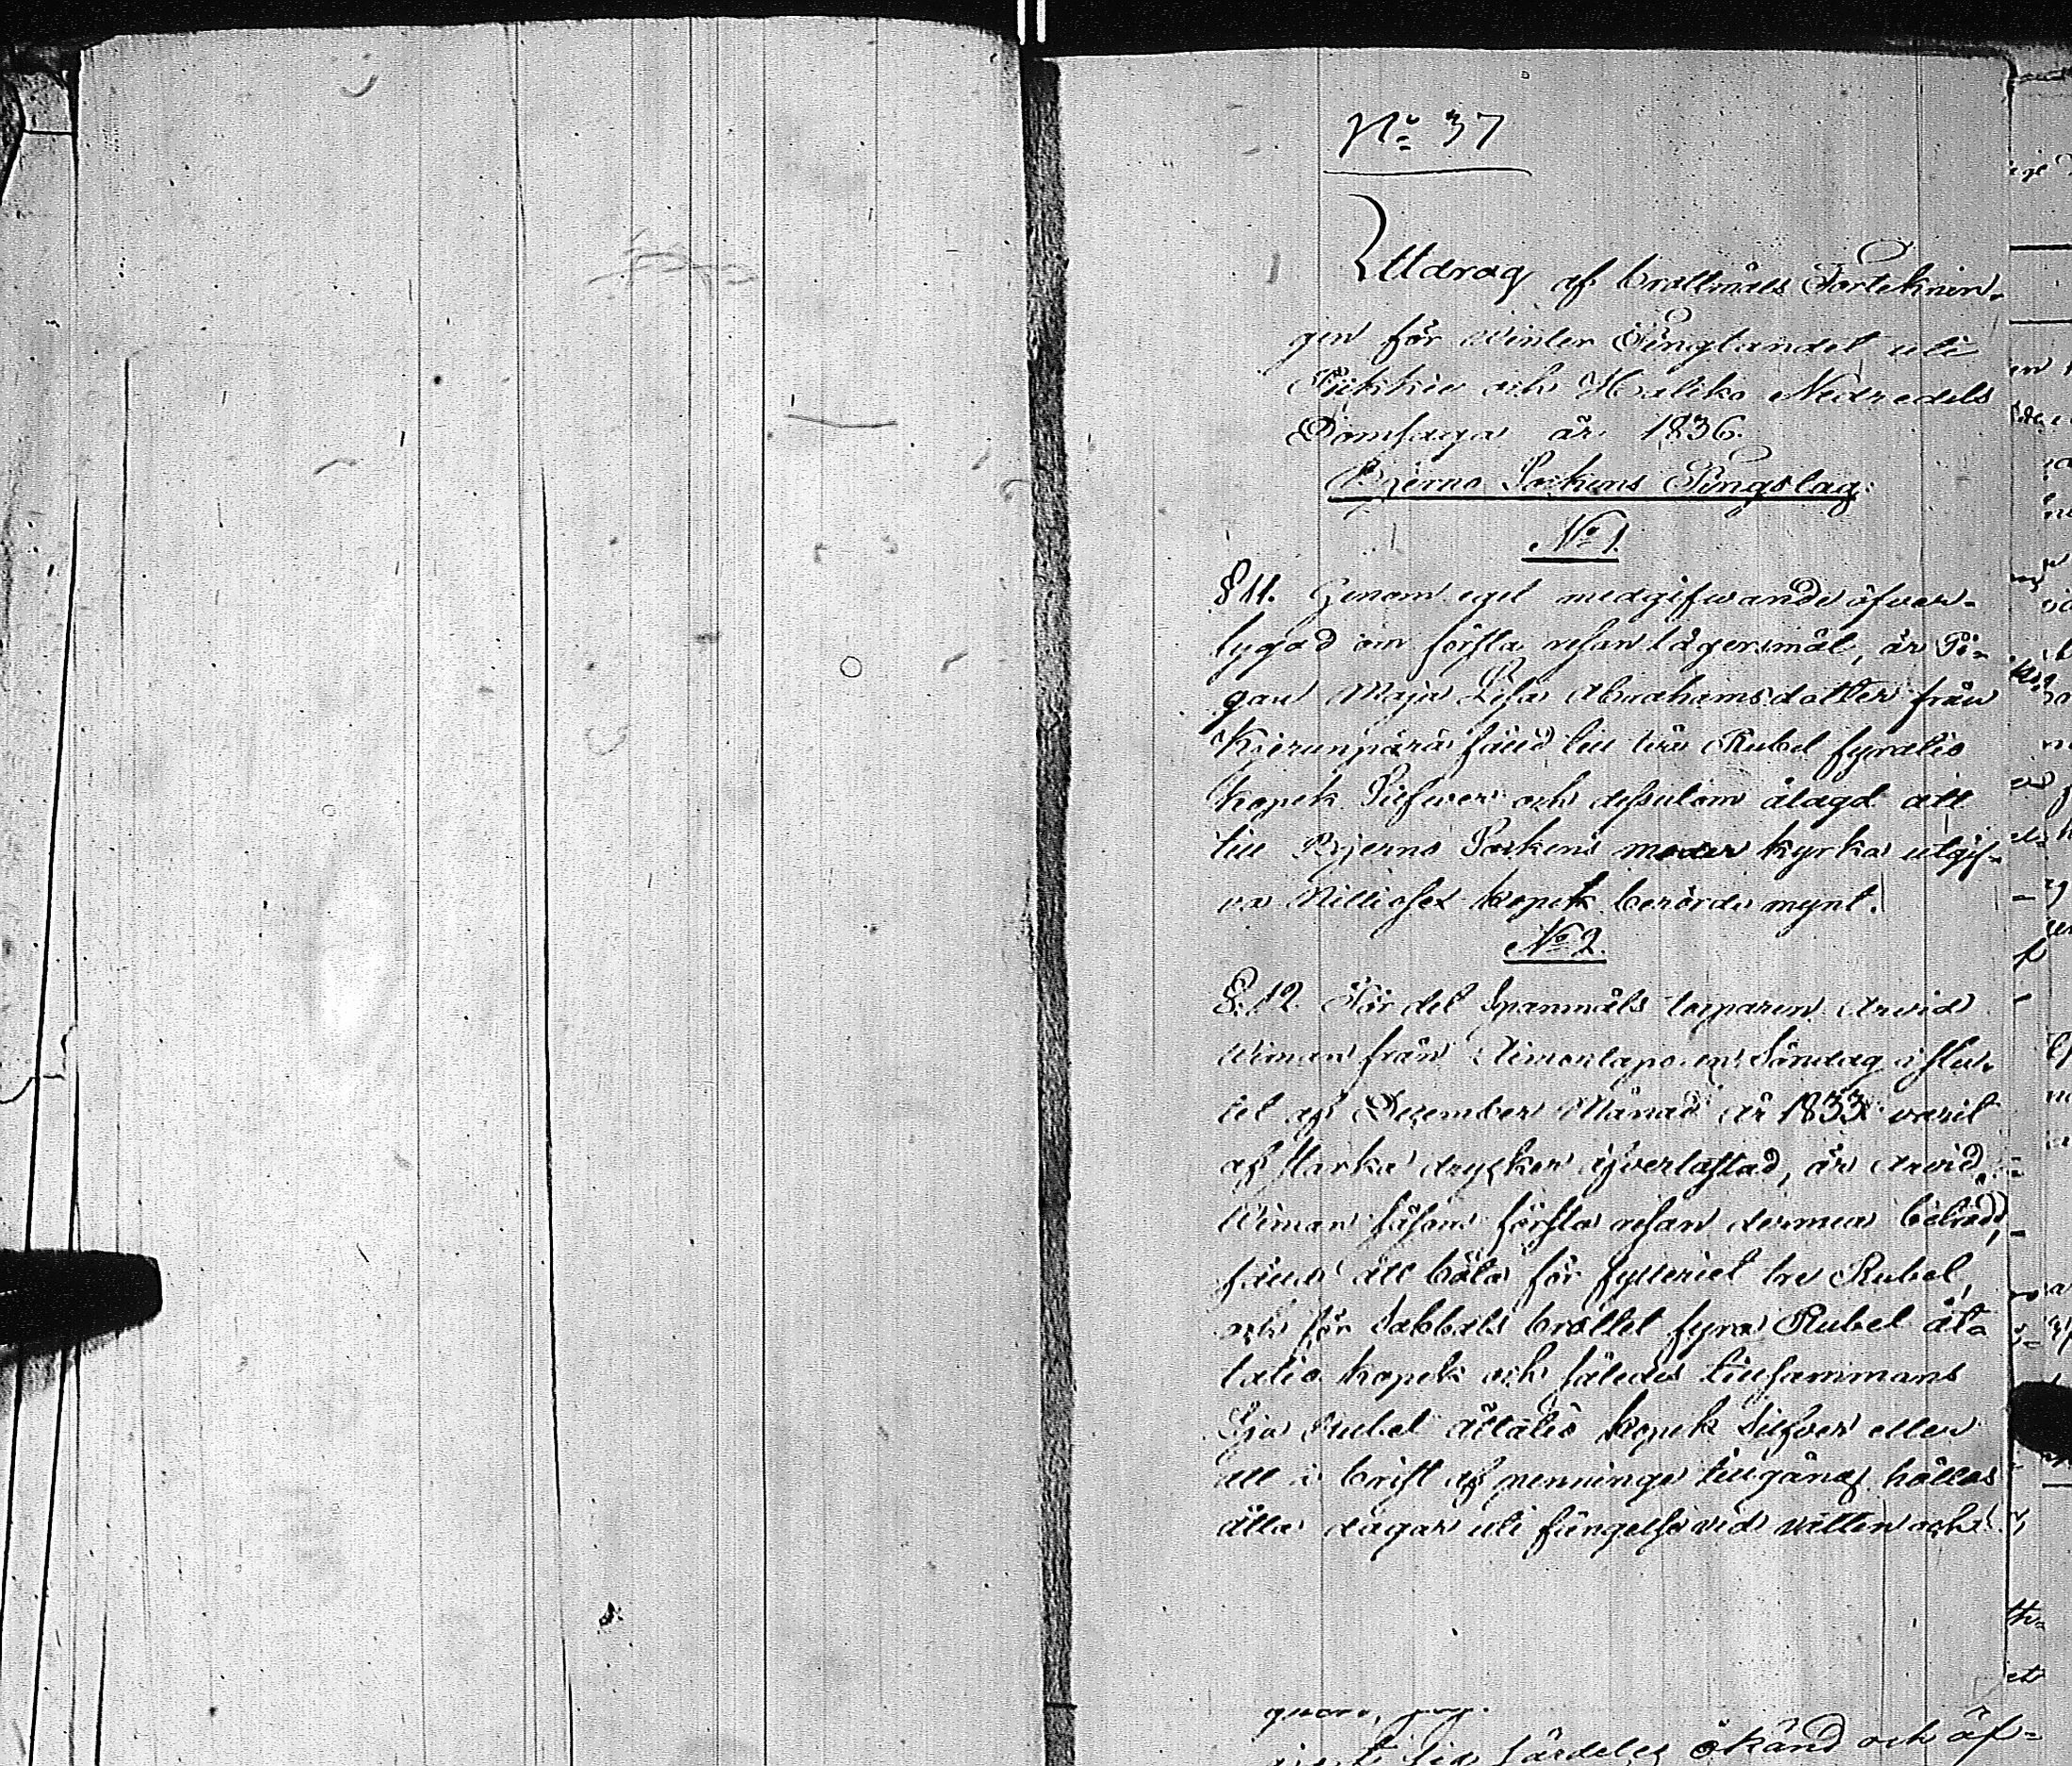 No 37
Utdrag af Brottmåls Förteknin-
gen för Winter Tinglandet uti
Pikkie och Haliko Nedredels
Domsaga år 1836.
Bjerno Sokens Tingslag:
No 1.
§ 11. Genom eget medgifwande öfver-
tygad om första resan lägersmål, är Pi-
gan Maja Lisa Abrahamsdotter från
fäld till två Rubel fyratio
kopek Silfwer och dessutom ålagd att
till Bjerno Sokens moder kyrka utgif-
va Nittiosex kopek berörde mynt.
No 2.
§. 12. För det Spanmåls torparen Arvid
Wiman från en Söndag i slu-
tet af December Månad år 1833 varit
af starka drycker öfverlastad, är Arvid
Wiman såsom första resan dermed beträdd,
fäld att böta för fylleriet tre Rubel,
och för Sabbats brottet fyra Rubel åt-
tatio kopek och således tillsammans
Sju Rubel åttatio kopek Silfver eller
att i brist af penninge tillgång hållas
åtta dagar uti fängelse vid vatten och
särdeles okänd och äf-